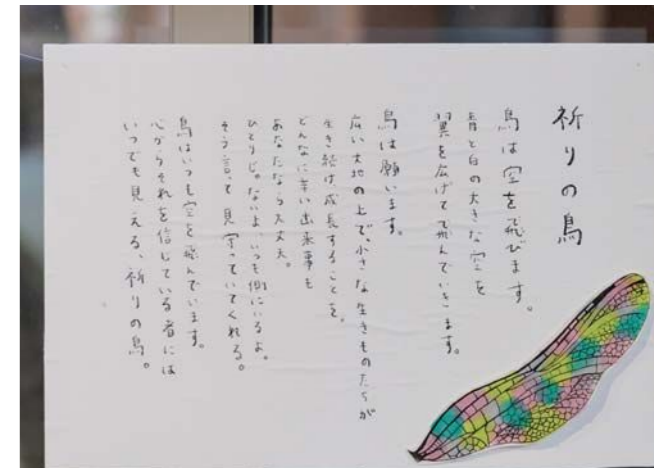 祈りの鳥
鳥は空を飛びます。
青と白の大きな空を
翼を広げて飛んでいきます。
鳥は願います。
広い大地の上で、小さな生きものたちが
生き続け成長することを。
どんなに辛い出来事も
あなたなら大丈夫。
ひとりじゃないよ、いつも側にいるよ。
そう言って見守っていてくれる。
鳥はいつも空を飛んでいます。
心からそれを信じている者には
いつでも見える、祈りの鳥。